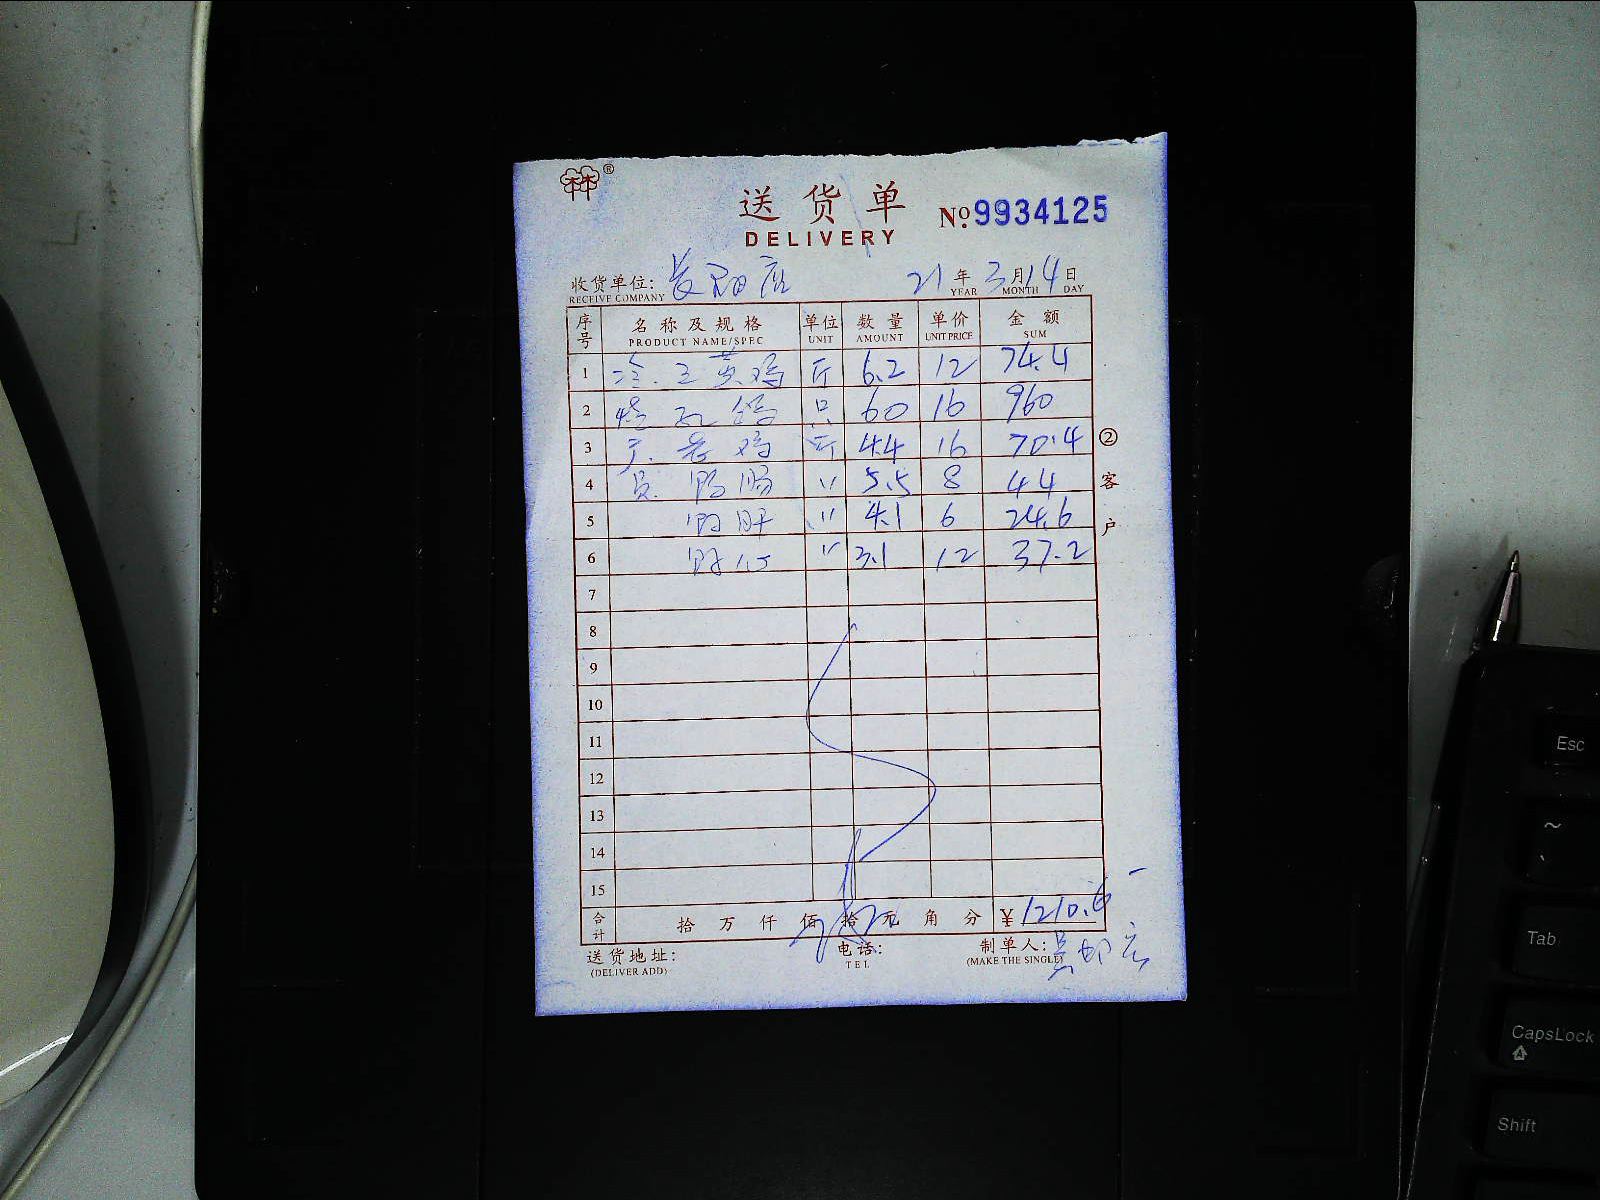 林®
送货单
DELIVERY
No.9934125
收货单位: 店 21年3月14日
RECEIVE COMPANY YEAR MONTH DAY
序号 名称及规格 单位 数量 单价 金额
PRODUCT NAME/SPEC UNIT AMOUNT UNIT PRICE SUM
1 冷.王黄鸡 斤 6.2 12 74.4
2 烧乳鸽 只 60 16 960
3 老鸡 斤 4.4 16 70.4
4 鸭肠 〃 5.5 8 44
5 鸭肝 〃 4.1 6 24.6
6 鸭心 〃 3.1 12 37.2
7
8
9
10
11
12
13
14
15
②客户
合计 拾万仟佰拾元角分 ¥1210.6
送货地址: 电话: 制单人:
(DELIVER ADD) TEL (MAKE THE SINGLE)
Esc
~
Tab
CapsLock
Shift